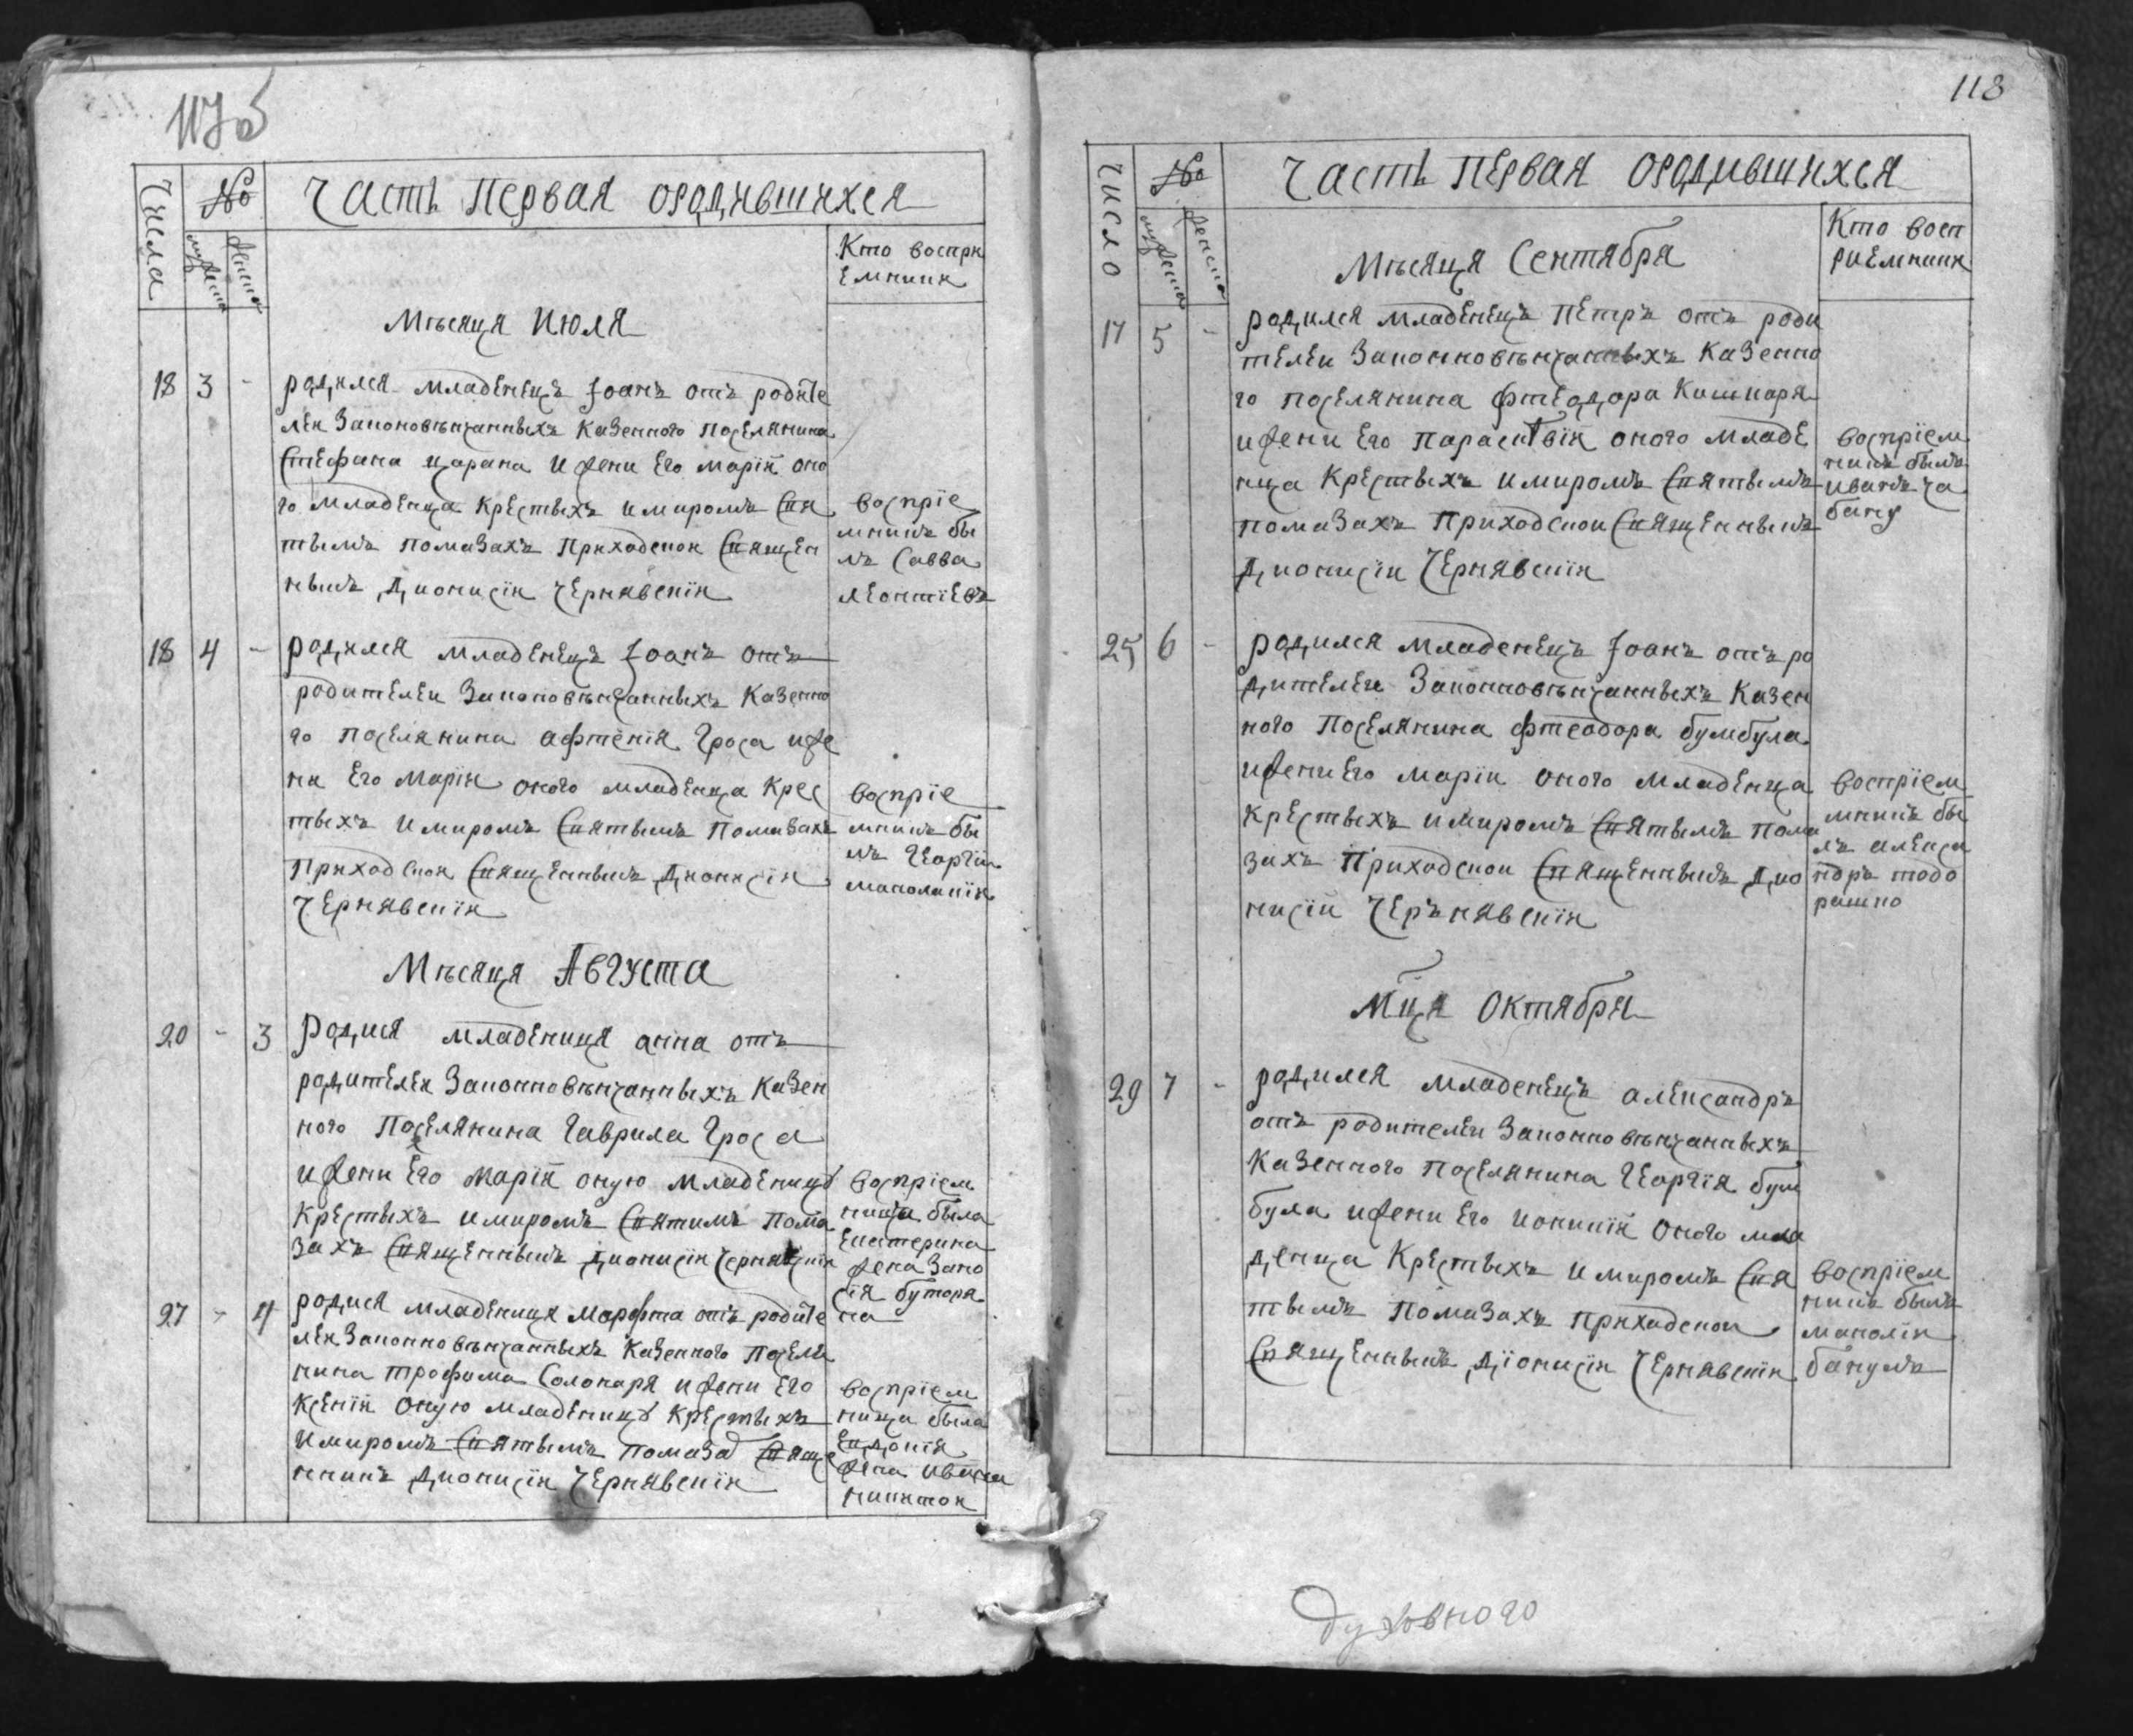 117 об
Числа
№
мужеска
женска
Часть Первая ородившихся
Кто воспри
емникъ
Мѣсяця Июля
18 3 -
родился младенецъ Іоанъ отъ родите
лей Законовѣнчанныхъ Казенного поселянина
Стефана Царана и жени Его Маріи оно
го младенца Крестыхъ и миромъ Свя
тымъ помазахъ Приходской Священ
ныкъ Дионисій Чернявскій
воспріе
мникъ бы
лъ Савва
Леонтіевъ
18 4 -
родился младенецъ Іоанъ отъ
родителей Законовѣнчанныхъ Казенно
го поселянина Афтенія Гроса и же
ни Его Маріи оного младенца Крес
тыхъ и миромъ Святымъ Помазахъ
Приходской Священныкъ Дионисій
Чернявскій
воспріе
мникъ бы
лъ Георгій
маполакій
Мѣсяця Августа
20 - 3
Родися младеница анна отъ
родителей Законновѣнчанныхъ Казен
ного Поселянина Гаврила Гроса
и жени Его Маріи оную младеницу
Крестыхъ и миромъ Святимъ Пома
захъ Священныкъ Дионисій Чернявскій
воспріем
ница была
Екатерина
жена Зано
сія бутора
на
27 - 4
родися младеница Марфта отъ родите
лей Законновѣнчанныхъ Казенного Поселя
нина Трофима Солонаря и жени Его
Ксеніи Оную младеницу Крестыхъ
и миромъ Святымъ помаза Свяще
нникъ Дионисій Чернявскій
воспріем
ница была
Евдокія
жена
118
Число
№
мужеска
женска
Часть Первая ородившихся
Кто восп
риемникъ
Мѣсяця Сентября
17 5 -
родился младенецъ Петръ отъ роди
телей Законновѣнчанныхъ Казенно
го поселянина Фтеодора Кашкаря
и жени Его Парасктвіи оного младе
нца Крестыхъ и миромъ Святымъ
помазахъ Приходской Священныкъ
Дионисій Чернявскій
воспріем
никъ былъ
Иванъ ча
бану
25 6 -
родился младенецъ Іоанъ отъ ро
дителей Законновѣнчанныхъ Казен
ного Поселянина Фтеодора бумбула
и жени Его Маріи оного младенца
Крестыхъ и миромъ Святымъ пома
захъ Приходской Священныкъ Дио
нисій Черънявскій
воспріем
мникъ бы
лъ Алекса
ндръ тодо
рашко
Мця Октября
29 7 -
родился младенецъ Александръ
отъ родителей Законновѣнчанныхъ
Казенного поселянина Георгія бум
була и жени Его Иокикіи оного мла
денца Крестыхъ и миромъ Свя
тымъ помазахъ приходской
Священныкъ Діонисій Чернявскій
воспріем
никъ былъ
маполій
банулъ
Духовного